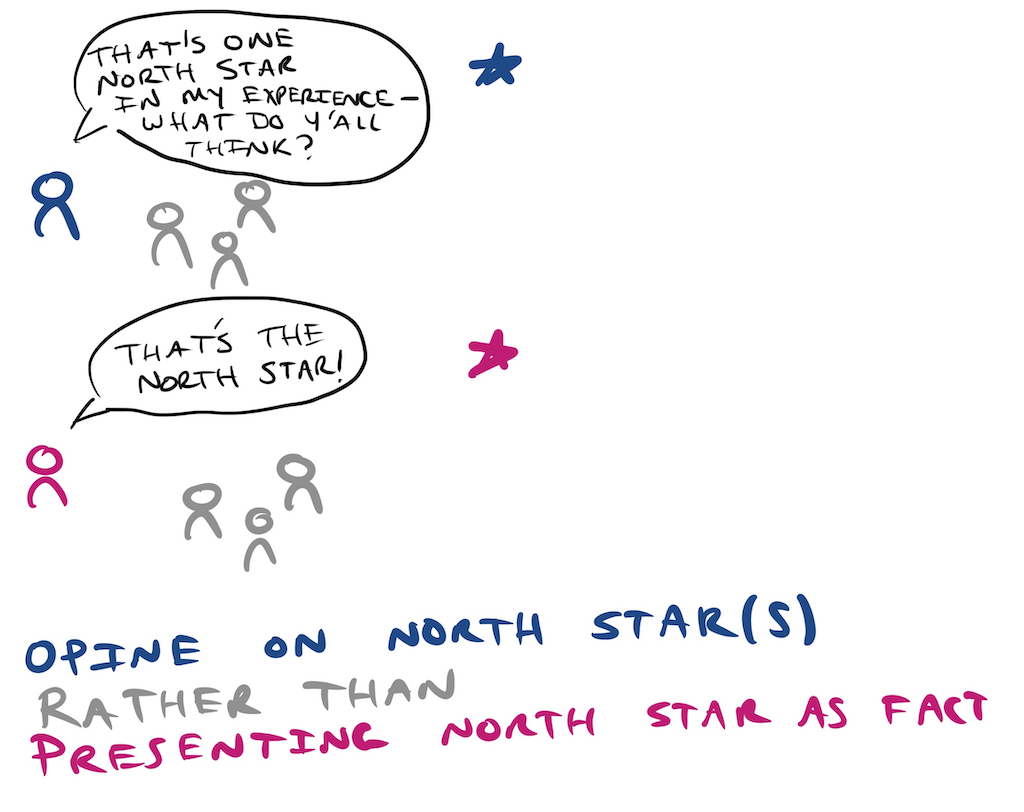 THAT'S ONE
NORTH STAR
IN MY EXPERIENCE -
WHAT DO Y'ALL
THINK?
THAT'S THE
NORTH STAR!
OPINE ON NORTH STAR(S)
RATHER THAN
PRESENTING NORTH STAR AS FACT